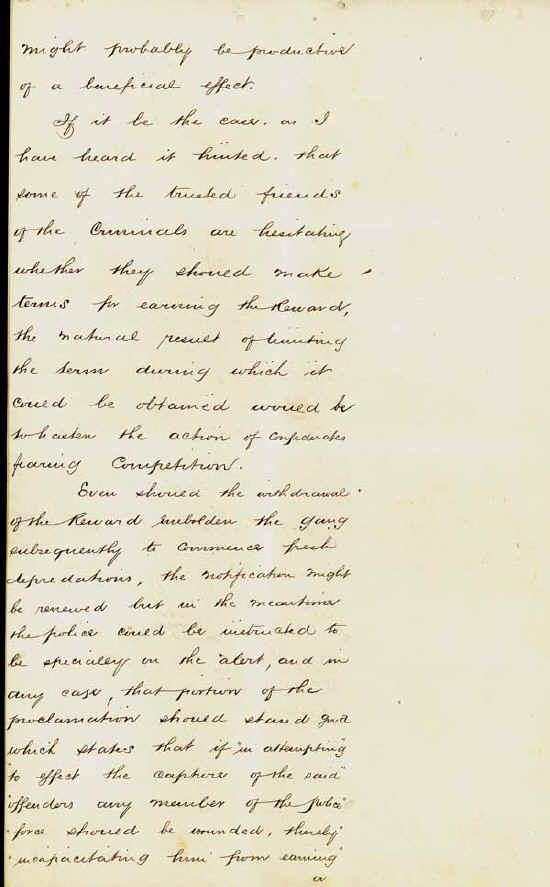 might probably be productive
of a beneficial effect.
If it be the case. as I
have heard it hinted. that
some of the trusted friends
of the Criminals are hesitating
whether they should make
terms for earning the Reward,
the natural result of limiting
the term during which it
could be obtained would be
to hasten the action of confederates
fearing Competition.
Even should the withdrawal
of the Reward embolden the gang
subsequently to commence fresh
depredations, the notification might
be renewed but in the meantime
the police could be instructed to
be specially on the alert, and in
any case, that portion of the
proclamation should stand good
which states that if "in attempting
"to effect the capture of the said
"offenders any member of the police
"force should be wounded, thereby
"incapacitating him from earning
a